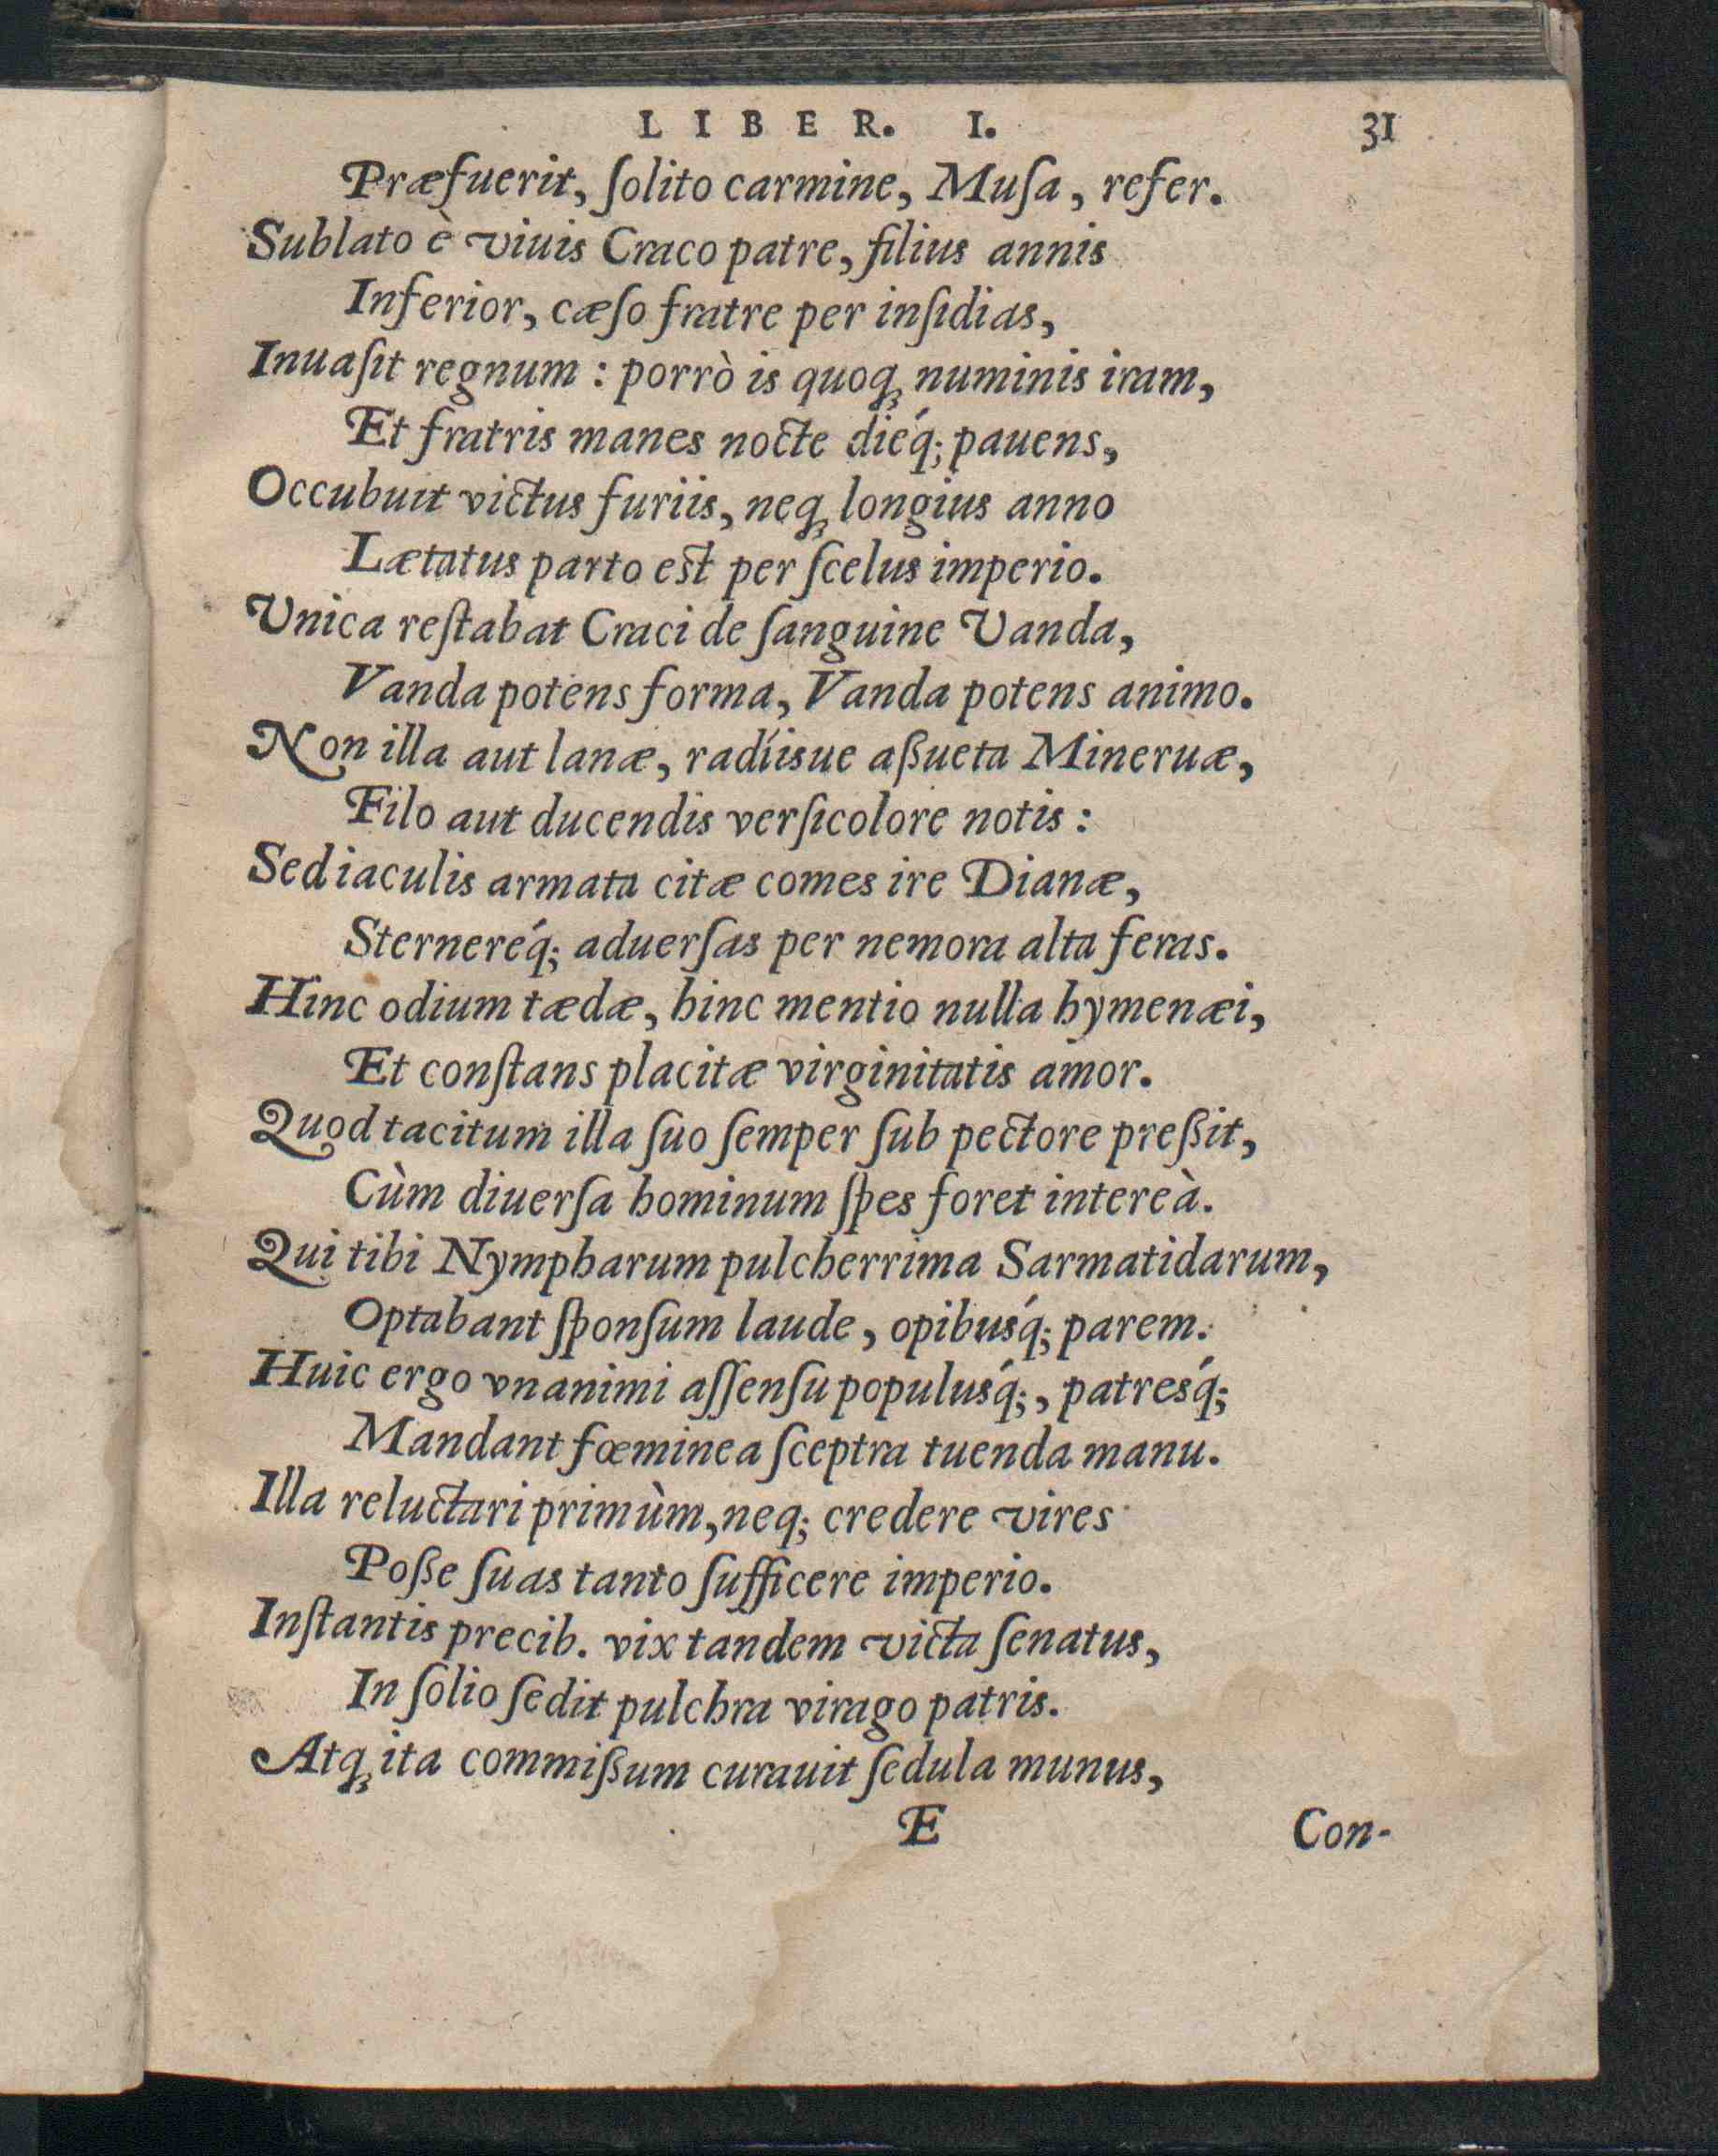 LIBER. I. 31
Præfuerit, ſolito carmine, Muſa, refer.
Sublato è viuis Craco patre, filius annis
Inferior, cæſo fratre per inſidias,
Inuaſit regnum: porrò is quoq; numinis iram,
Et fratris manes nocte diéq; pauens,
Occubuit victus furiis, neq; longius anno
Lætatus parto est per ſcelus imperio.
Vnica reſtabat Craci de ſanguine Vanda,
Vanda potens forma, Vanda potens animo.
Non illa aut lanæ, radíisue aßueta Mineruæ,
Filo aut ducendis verſicolore notis:
Sed iaculis armata citæ comes ire Dianæ,
Sterneréq; aduerſas per nemora alta feras.
Hinc odium tædæ, hinc mentio nulla hymenæi,
Et conſtans placitæ virginitatis amor.
Quod tacitum illa ſuo ſemper ſub pectore preßit,
Cùm diuerſa hominum ſpes foret intereà.
Qui tibi Nympharum pulcherrima Sarmatidarum,
Optabant ſponſum laude, opibusq́; parem.
Huic ergo vnanimi aſſenſu populusq́;, patresq́;
Mandant fœminea ſceptra tuenda manu.
Illa reluctari primùm, neq; credere vires
Poße ſuas tanto ſufficere imperio.
Inſtantis precib. vix tandem victa ſenatus,
In ſolio ſedit pulchra virago patris.
Atq; ita commißum curauit ſedula munus,
E Con-